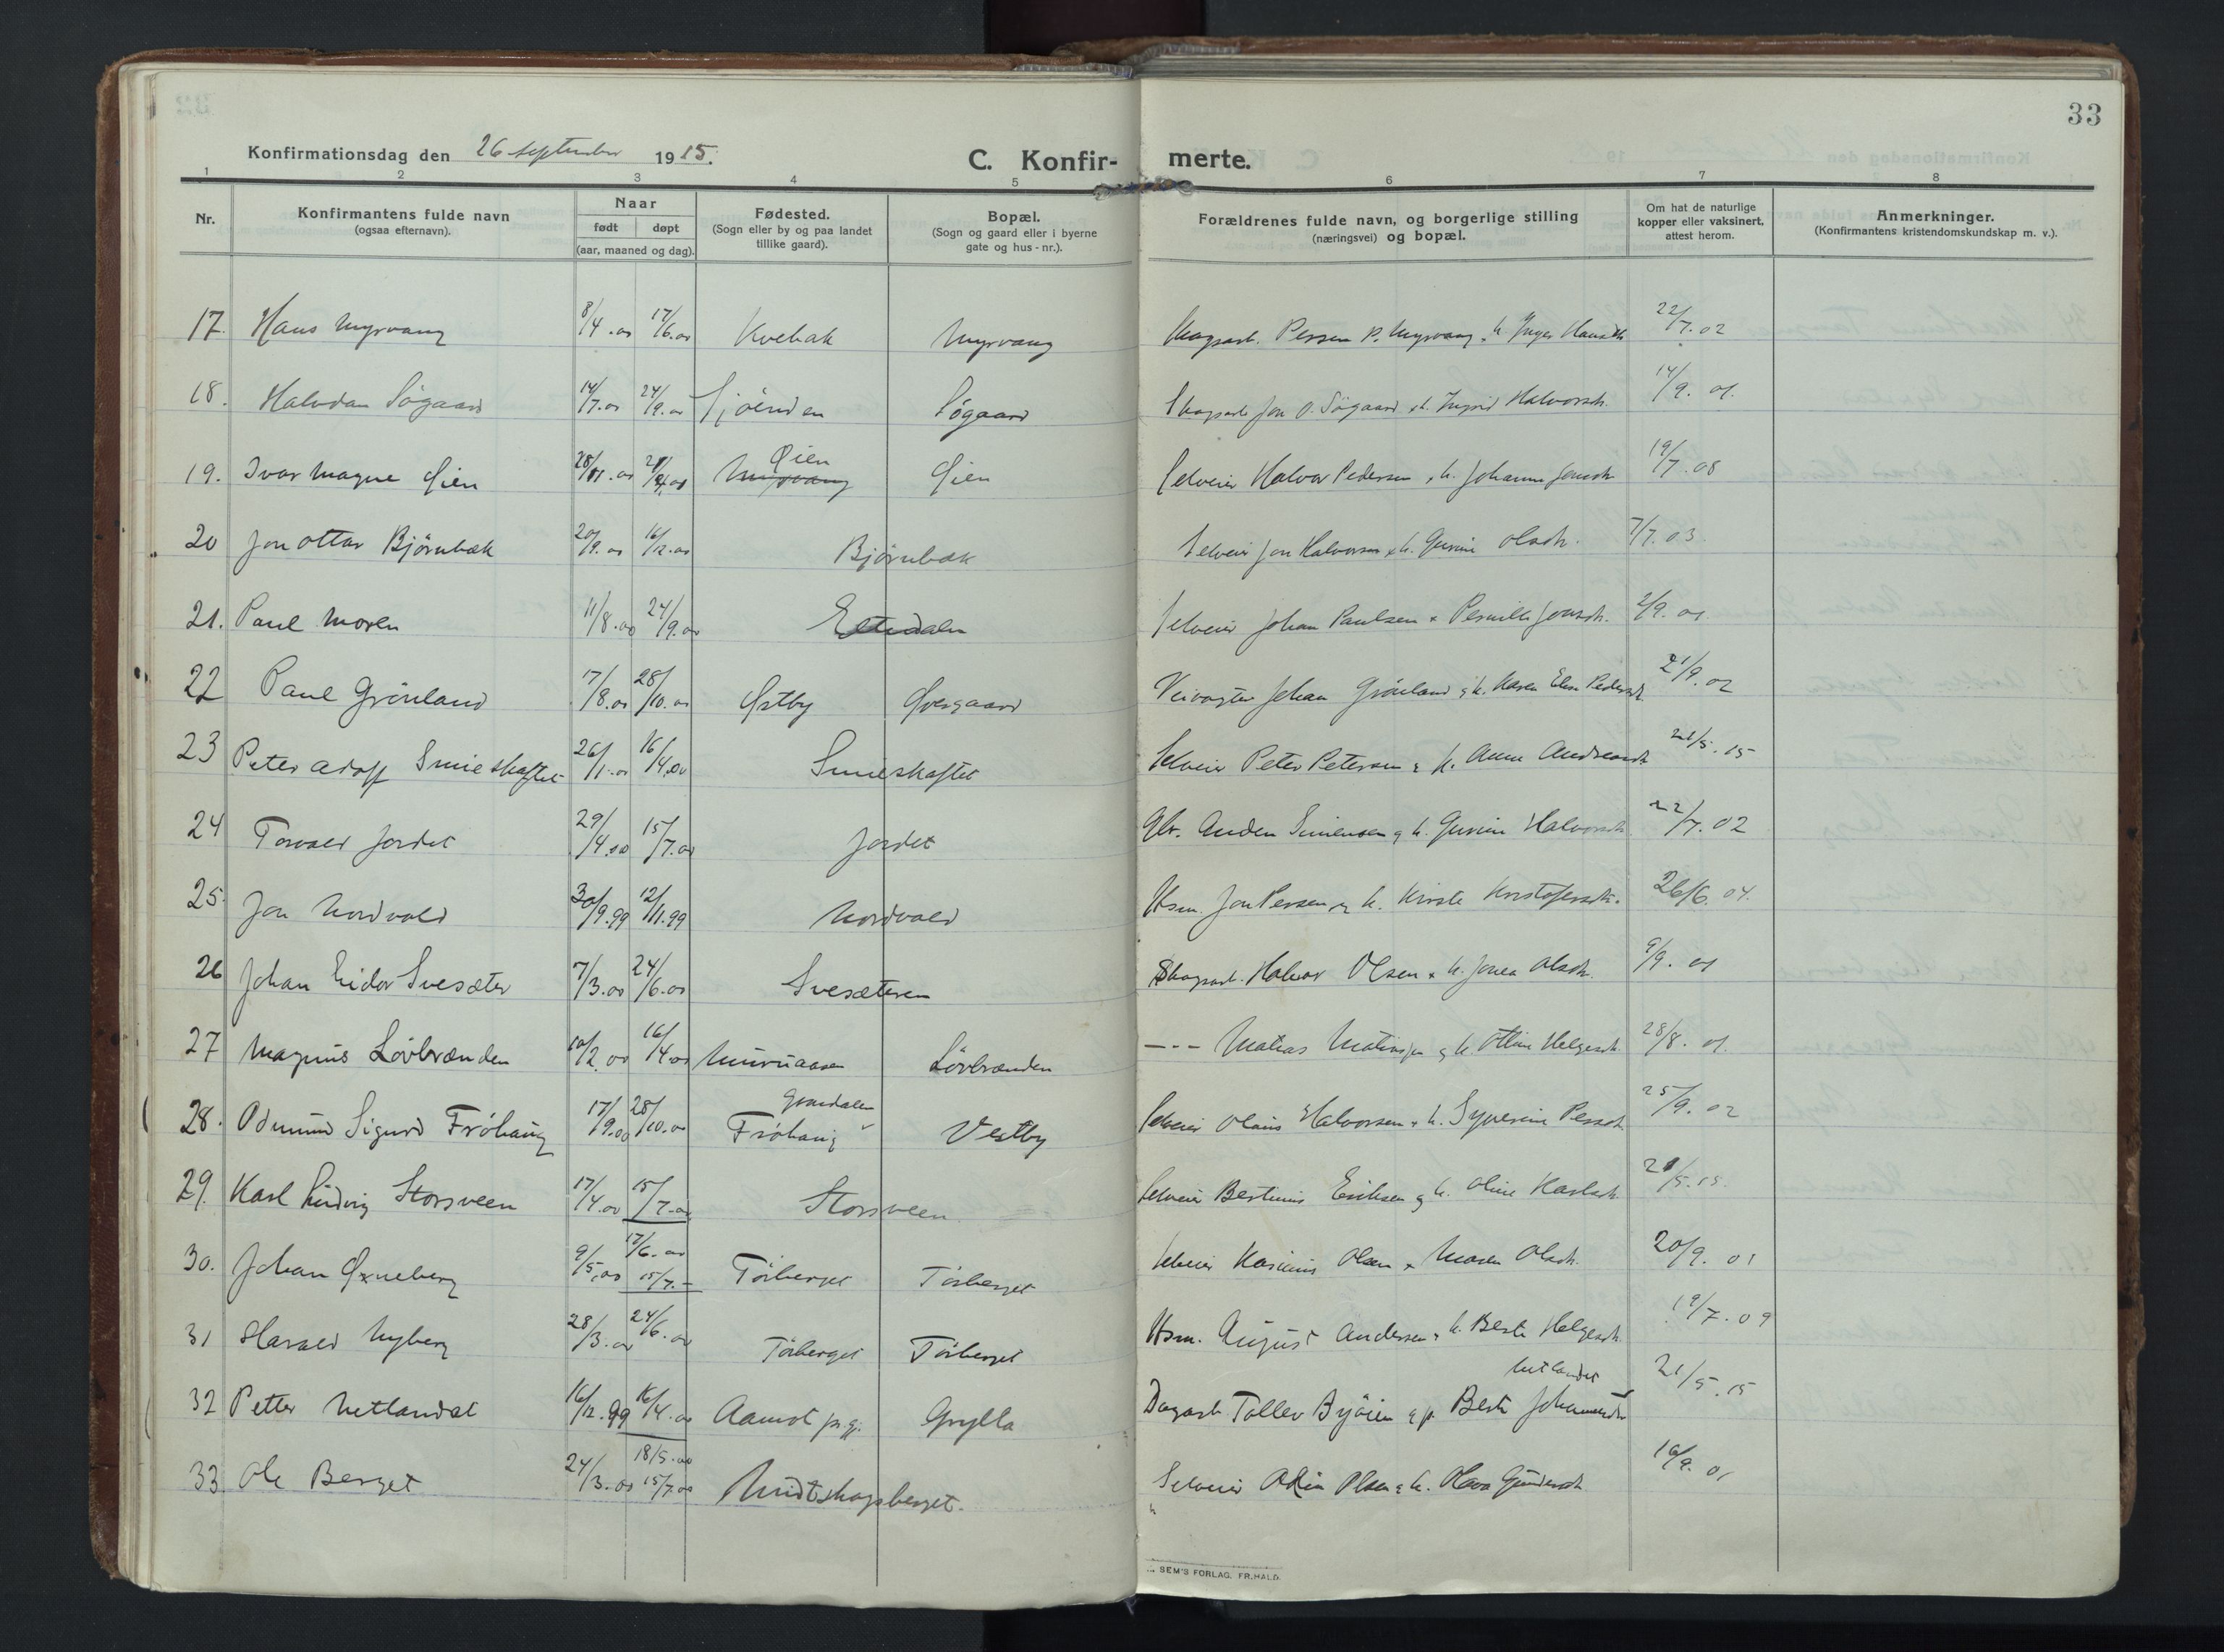 33
Konfirmationsdag den 26 september 1915.
C. Konfir- merte.
1 2 3 4 5 6 7 8
Nr.
Konfirmantens fulde navn
(ogsaa efternavn).
Naar
født døpt
(aar, maaned og dag).
Fødested.
(Sogn eller by og paa landet
tillike gaard).
Bopæl.
(Sogn og gaard eller i byerne
gate og hus - nr.).
Forældrenes fulde navn, og borgerlige stilling
(næringsvei) og bopæl.
Om hat de naturlige
kopper eller vaksinert,
attest herom.
Anmerkninger.
(Konfirmantens kristendomskundskap m. v.).
17. Hans Myrvang 8/4.00 17/6.00 Kvebak Myrvang Skogsarb. Persen P. Myrvang, h. Inger Hansdtr 22/7.02
18. Halvdan Søgaard 14/7.00 24/9.00 Sjøenden Søgaard Skogsarb Jon O. Søgaard, h. Ingrid Halvorsdtr. 14/9. 01.
Øien
19. Ivar Magne Øien 28/11.00 Myrvang Øien Selveier Halvor Pedersen, h. Johanne Jonsdtr 19/7.08
20 Jon Ottar Bjørnbæk 20/9.00 16/12.00 Bjørnbæk Selveier Jon Halvorsen, h. Gunine Olsdtr. 7/7.03.
21. Paul Moren 11/8.00 24/9.00 Eltdalen Selveier Johan Paulsen & Pernille Jonsdtr. 2/9.01
22 Paul Grönland 17/8.00 28/10.00 Østby Øvergaard Veivogter Johan Grönland & h. Karen Eline Pedersdtr. 21/9.02
23 Peter Adolf Smieskaftet 26/1.00 16/4.00 Smieskaftet Selveier Peter Petersen & h. Anne Andreasdtr 21/5.15
24 Torvald Jordet 29/4.00 15/7.00 Jordet Gbr. Anden Simensen & h. Gunine Halvorsdtr. 22/7.02
25. Jon Nordvald 30/9.99 12/11.99 Nordvald Hsm. Jon Persen & h. Kirste Kristofersdtr. 26/6.04.
26 Johan Eidor Svesæter 7/3.00 24/6.00 Svesæteren Skogsarb. Halvor Olsen & h. Jonea Olsdtr. 9/9.01
27 Magnus Lövbrænden 10/2.00 16/4.00 Muruaasen Lövbrænden - - - Matias Matiasen & h. Otline Helgesdtr. 28/8.01.
Grøndalen
28. Odmund Sigurd Fröhaug 17/9.00 28/10.00 Fröhaug Vestby Selveier Olaus Halvorsen, h. Syverine Persdtr. 25/9.02
29. Karl Ludvig Storsveen 17/4.00 15/7.00 Storsveen Selveier Bertinus Eriksen & h. Oline Karlsdtr. 21/5.15.
30. Johan Øxneberg 9/5.00 17/6.00 15/7.- Törberget Törberget Selveier Kasinus Olsen & Maren Olsdtr. 20/9.01
31 Harald Nyberg 28/3.00 24/6.00 Törberget Törberget Hsm. August Andersen, h. Berte Helgesdtr. 19/7.09
Netlandet
32 Petter Netlandet 16/12.99 16/4.00 Aamot pr.gj. Grylla Dagarb. Tollev Bryöien & p. Berte Johannesdtr 21/5.15
33. Ole Berget 24/3.00 18/5.00 15/7.00 Midtskogsberget. Selveier Odin Olsen & h. Olava Gundersdtr 19/9.01
SEM'S FORLAG, FR.HALD.